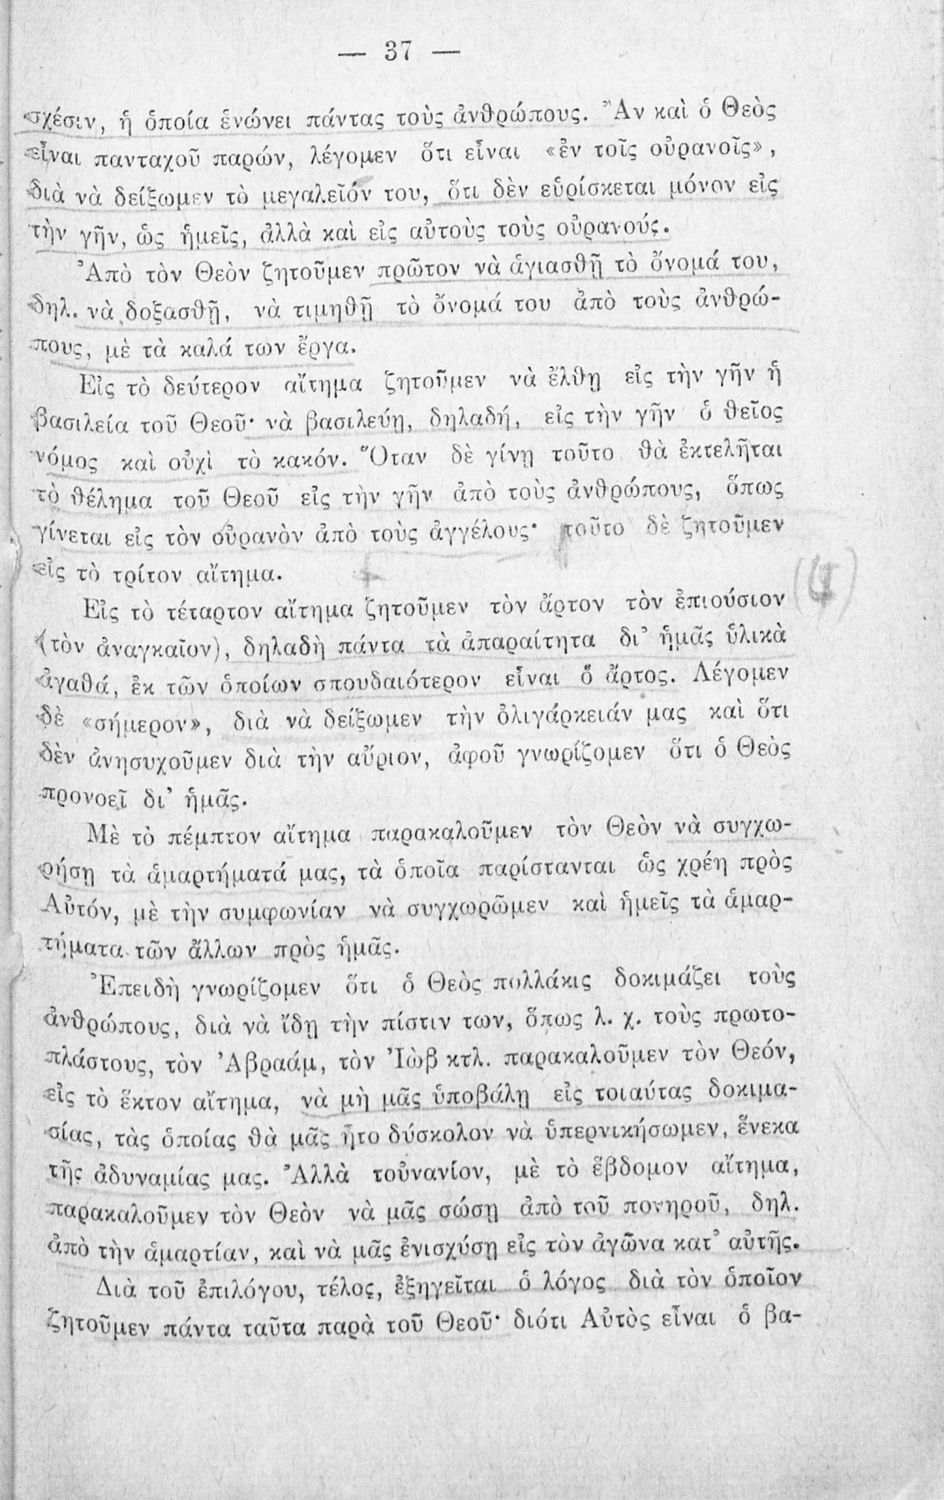 — 37 —
σχέσιν, ἡ ὁποία ἑνώνει πάντας τοὺς ἀνθρώπους. Ἂν καὶ ὁ Θεὸς
εἶναι πανταχοῦ παρών, λέγομεν ὅτι εἶναι «ἐν τοῖς οὐρανοῖς»,
διὰ νὰ δείξωμεν τὸ μεγαλεῖόν του, ὅτι δὲν εὑρίσκεται μόνον εἰς
τὴν γῆν, ὡς ἡμεῖς, ἀλλὰ καὶ εἰς αὐτοὺς τοὺς οὐρανούς.
Ἀπὸ τὸν Θεὸν ζητοῦμεν πρῶτον νὰ ἁγιασθῇ τὸ ὄνομά του,
δηλ. νὰ δοξασθῇ, νὰ τιμηθῇ τὸ ὄνομά του ἀπὸ τοὺς ἀνθρώ-
πους, μὲ τὰ καλά των ἔργα.
Εἰς τὸ δεύτερον αἴτημα ζητοῦμεν νὰ ἔλθῃ εἰς τὴν γῆν ἡ
βασιλεία τοῦ Θεοῦ· νὰ βασιλεύῃ, δηλαδή, εἰς τὴν γῆν ὁ θεῖος
νόμος καὶ οὐχὶ τὸ κακόν. Ὅταν δὲ γίνῃ τοῦτο θὰ ἐκτελῆται
τὸ θέλημα τοῦ Θεοῦ εἰς τὴν γῆν ἀπὸ τοὺς ἀνθρώπους, ὅπως
γίνεται εἰς τὸν οὐρανὸν ἀπὸ τοὺς ἀγγέλους· τοῦτο δὲ ζητοῦμεν
εἰς τὸ τρίτον αἴτημα.
Εἰς τὸ τέταρτον αἴτημα ζητοῦμεν τὸν ἄρτον τὸν ἐπιούσιον
(τὸν ἀναγκαῖον), δηλαδὴ πάντα τὰ ἀπαραίτητα δι' ἡμᾶς ὑλικὰ
ἀγαθά, ἐκ τῶν ὁποίων σπουδαιότερον εἶναι ὁ ἄρτος. Λέγομεν
δὲ «σήμερον», διὰ νὰ δείξωμεν τὴν ὀλιγάρκειάν μας καὶ ὅτι
δὲν ἀνησυχοῦμεν διὰ τὴν αὔριον, ἀφοῦ γνωρίζομεν ὅτι ὁ Θεὸς
προνοεῖ δι' ἡμᾶς.
Μὲ τὸ πέμπτον αἴτημα παρακαλοῦμεν τὸν Θεὸν νὰ συγχω-
ρήσῃ τὰ ἁμαρτήματά μας, τὰ ὁποῖα παρίστανται ὡς χρέη πρὸς
Αὐτόν, μὲ τὴν συμφωνίαν νὰ συγχωρῶμεν καὶ ἡμεῖς τὰ ἁμαρ-
τήματα τῶν ἄλλων πρὸς ἡμᾶς.
Ἐπειδὴ γνωρίζομεν ὅτι ὁ Θεὸς πολλάκις δοκιμάζει τοὺς
ἀνθρώπους, διὰ νὰ ἴδῃ τὴν πίστιν των, ὅπως λ. χ. τοὺς πρωτο-
πλάστους, τὸν Ἀβραάμ, τὸν Ἰὼβ κτλ. παρακαλοῦμεν τὸν Θεόν,
εἰς τὸ ἕκτον αἴτημα, νὰ μὴ μᾶς ὑποβάλῃ εἰς τοιαύτας δοκιμα-
σίας, τὰς ὁποίας θὰ μᾶς ἦτο δύσκολον νὰ ὑπερνικήσωμεν, ἕνεκα
τῆς ἀδυναμίας μας. Ἀλλὰ τοὐναντίον, μὲ τὸ ἕβδομον αἴτημα,
παρακαλοῦμεν τὸν Θεὸν νὰ μᾶς σώσῃ ἀπὸ τοῦ πονηροῦ, δηλ.
ἀπὸ τὴν ἁμαρτίαν, καὶ νὰ μᾶς ἐνισχύσῃ εἰς τὸν ἀγῶνα κατ' αὐτῆς.
Διὰ τοῦ ἐπιλόγου, τέλος, ἐξηγεῖται ὁ λόγος διὰ τὸν ὁποῖον
ζητοῦμεν πάντα ταῦτα παρὰ τοῦ Θεοῦ· διότι Αὐτὸς εἶναι ὁ βα-